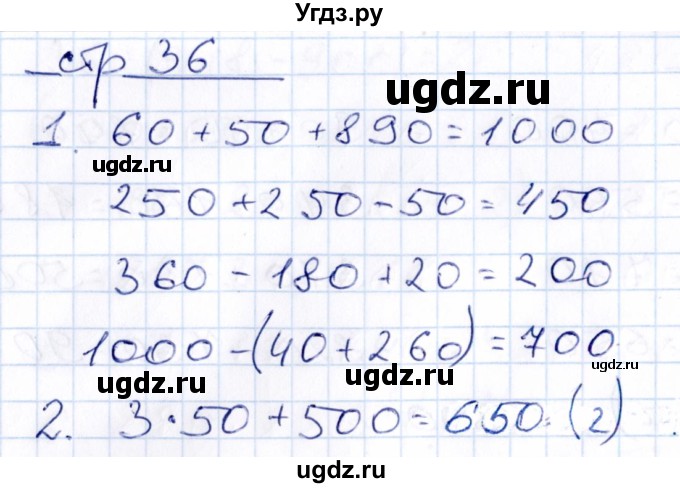 Угдз.ру
стр 36
ugdz.ru
1. 60 + 50 + 890 = 1000
ugdz.ru
250 + 250 - 50 = 450
ugdz.ru
360 - 180 + 20 = 200
1000 - (40 + 260) = 700
ugdz.ru
ugdz.ru
ugdz.ru
2. 3·50 + 500 = 650 (г)
ugdz.ru
ugdz.ru